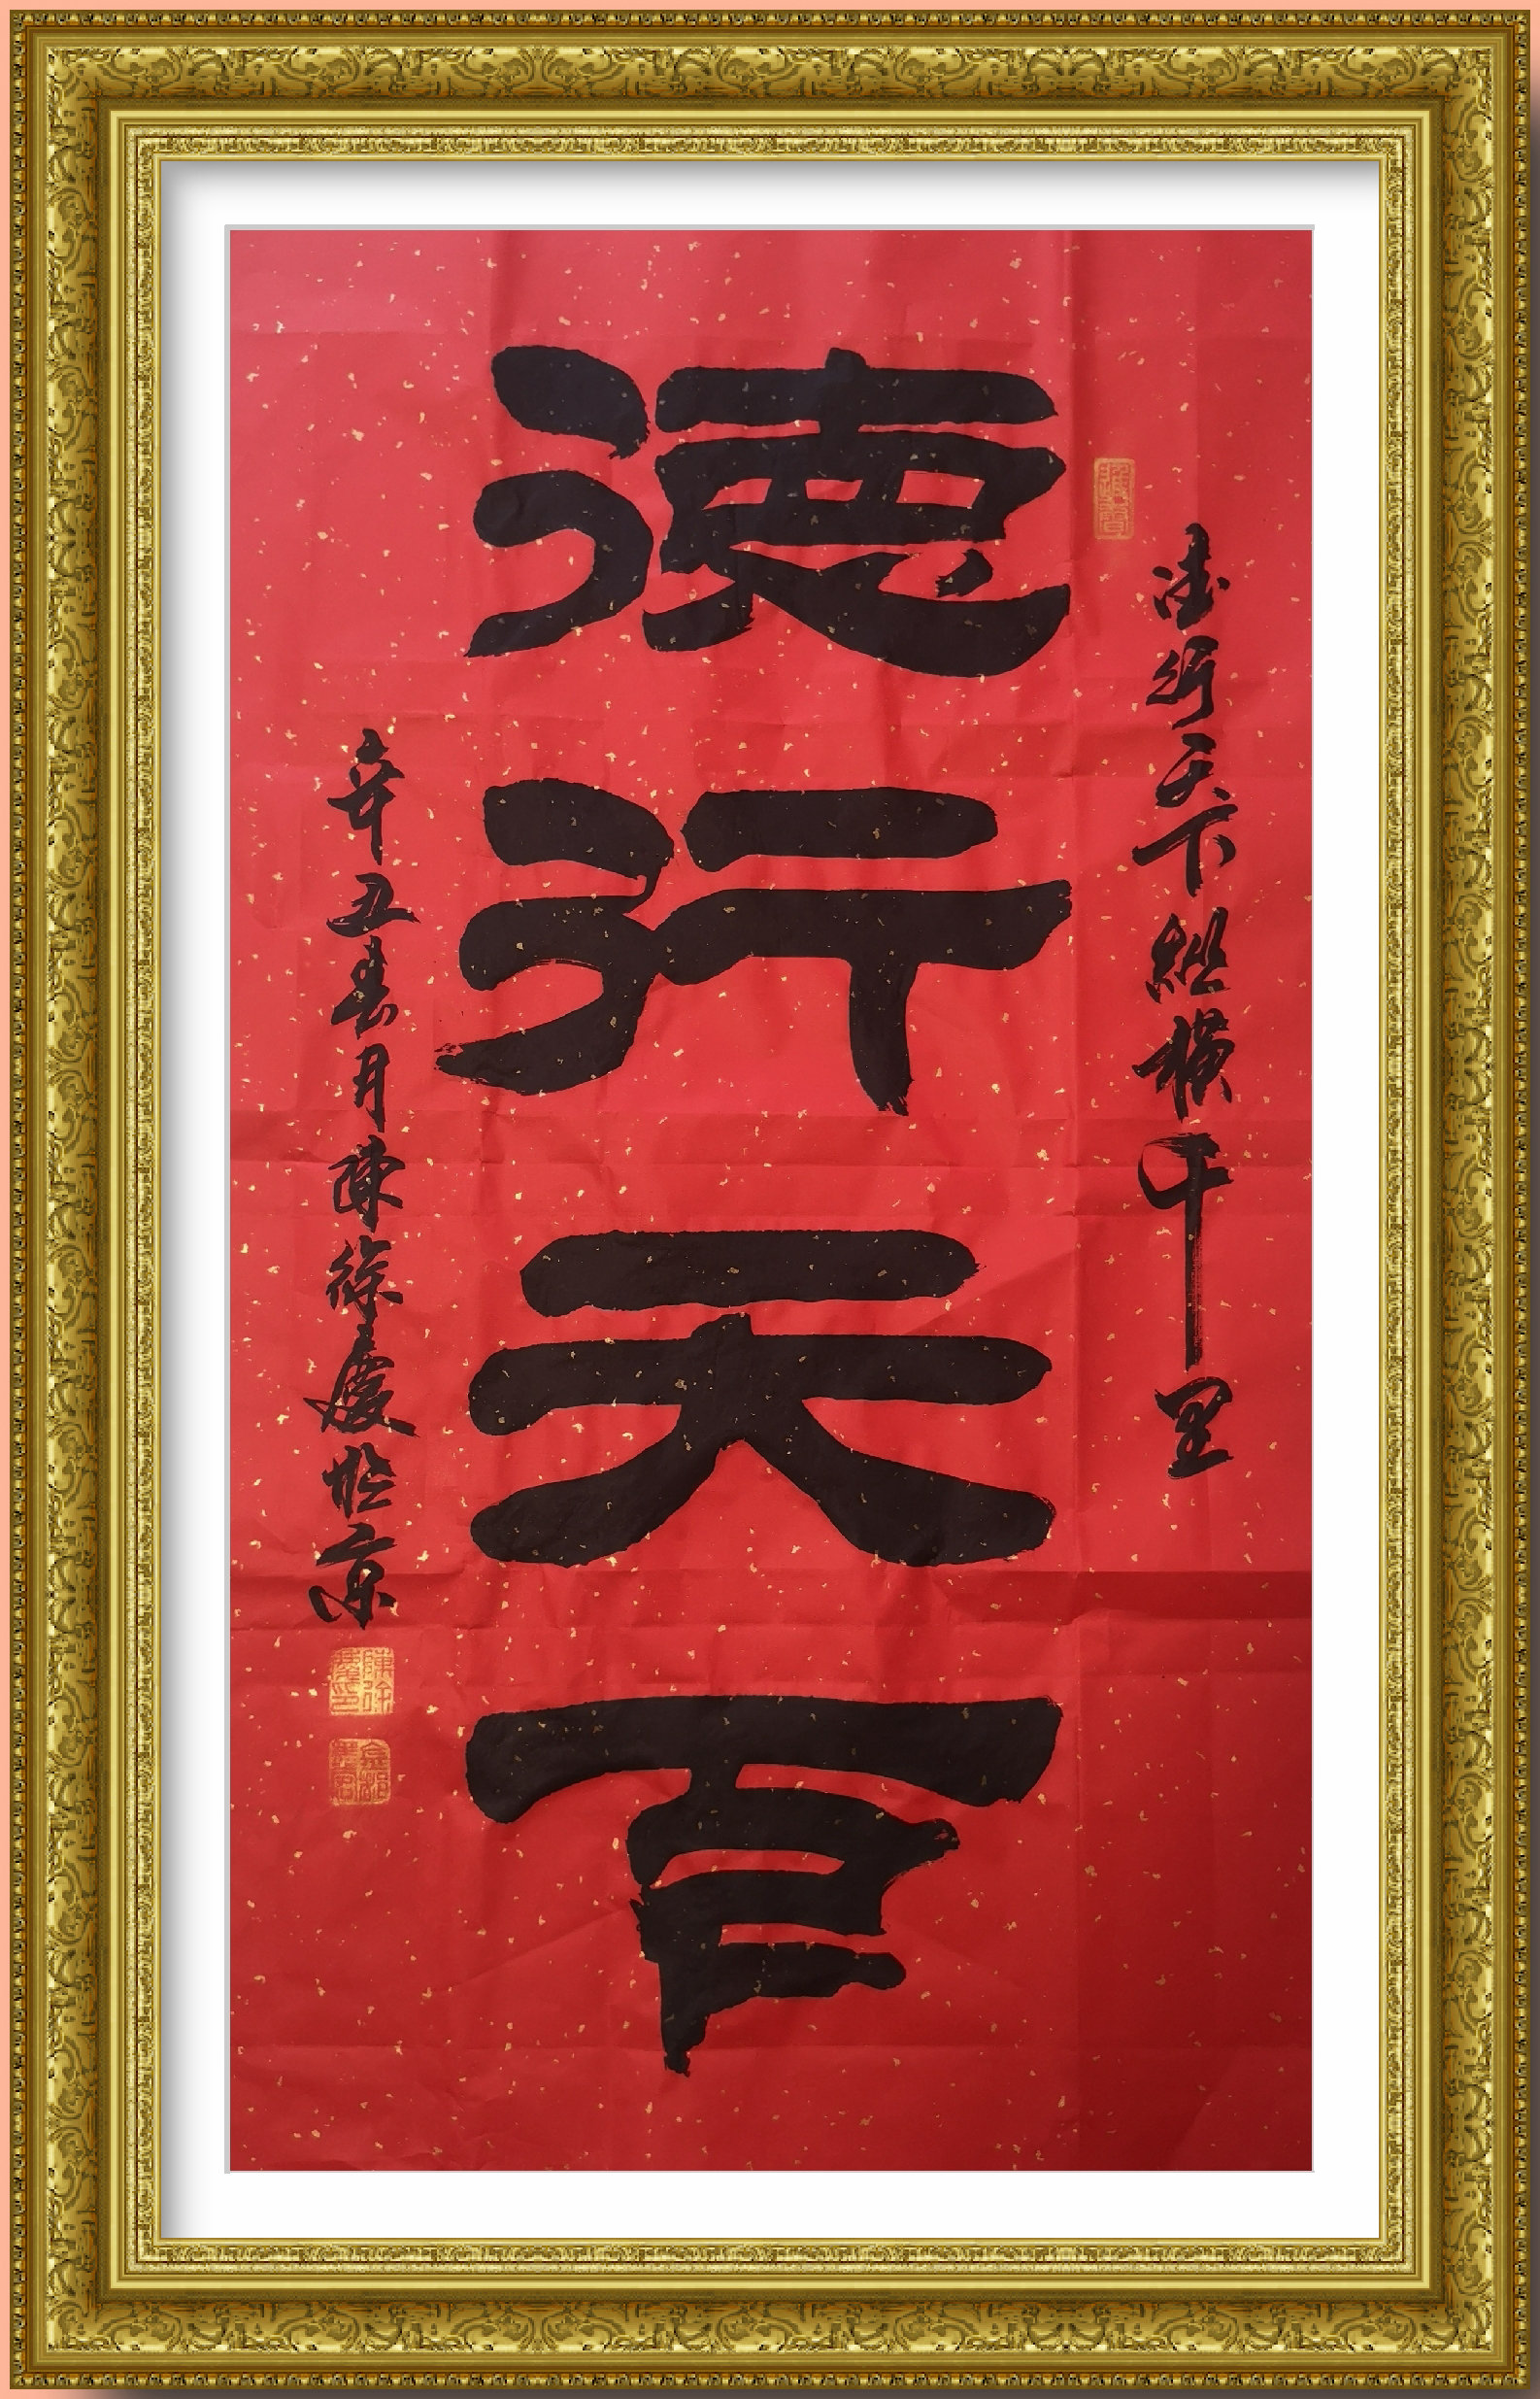 德行天下縱橫千里
德行天
辛丑春月陳徐慶於京
陳徐慶印